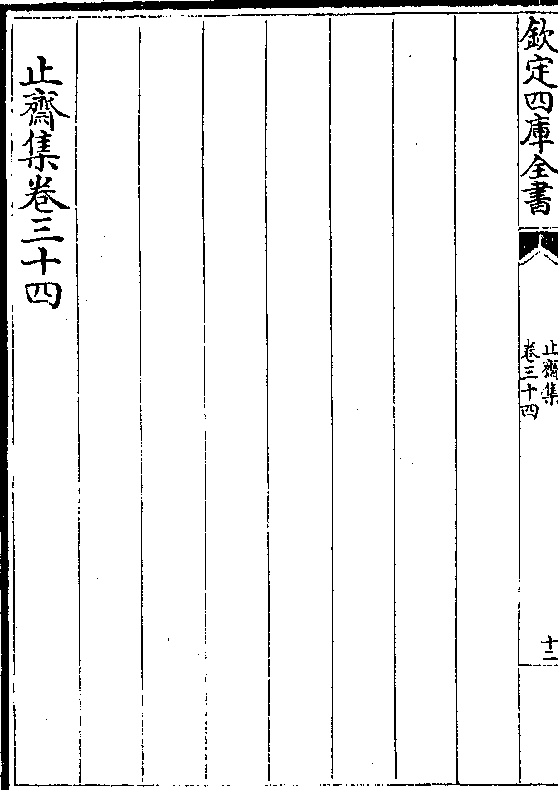 欽定四庫全書
止齋集
卷三十四
十二
止齋集卷三十四